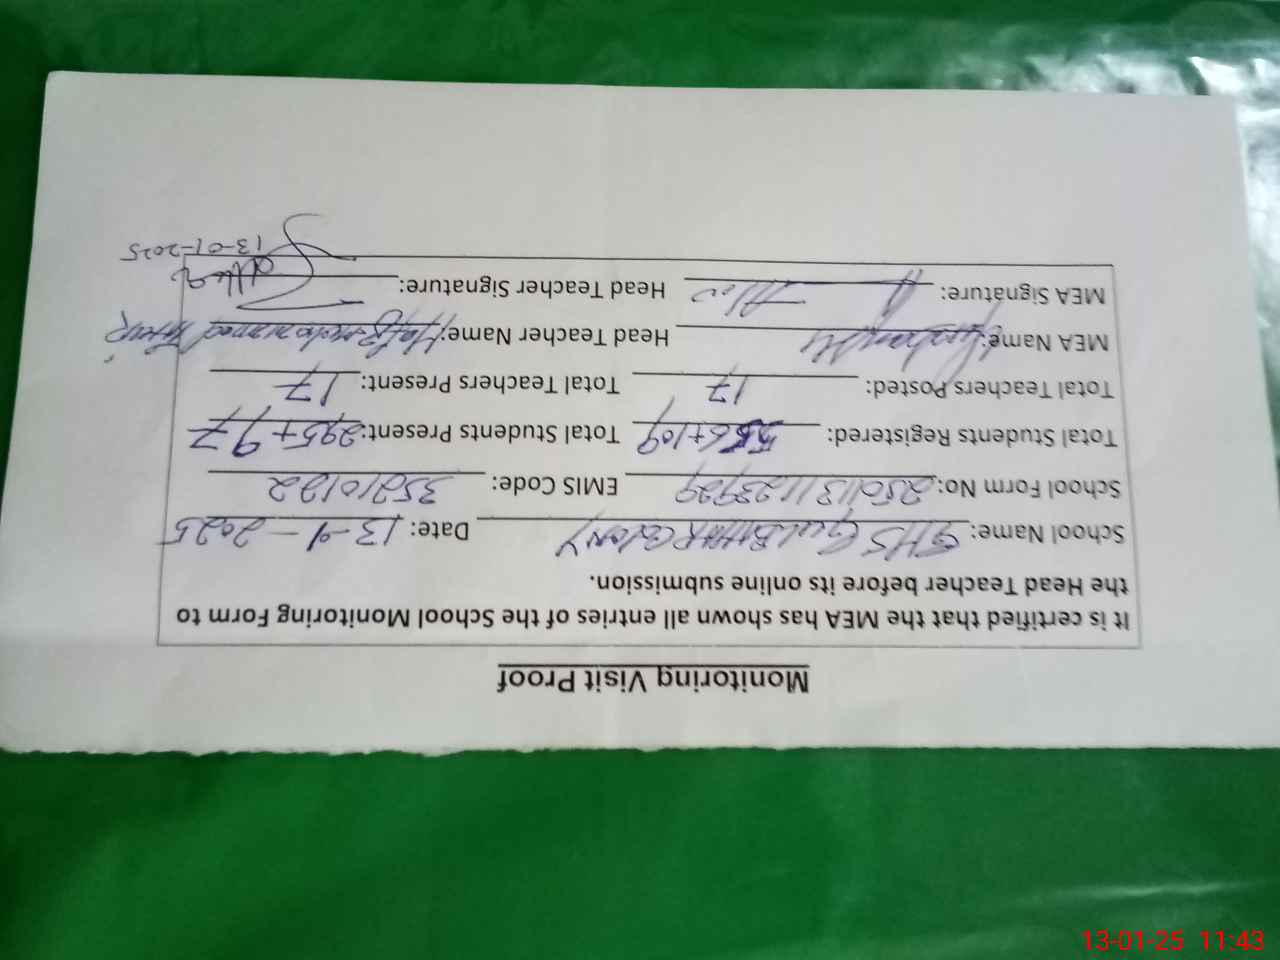 Monitoring Visit Proof
It is certified that the MEA has shown all entries of the School Monitoring Form to
the Head Teacher before its online submission.
School Name: GHS GULBAHAR COLONY Date: 13-01-2025
School Form No: EMIS Code: 35210122
Total Students Registered: Total Students Present: 295+97
Total Teachers Posted: 17 Total Teachers Present: 17
MEA Name: Head Teacher Name: Muhammad
MEA Signature: Head Teacher Signature:
13-01-2025
13-01-25 11:43